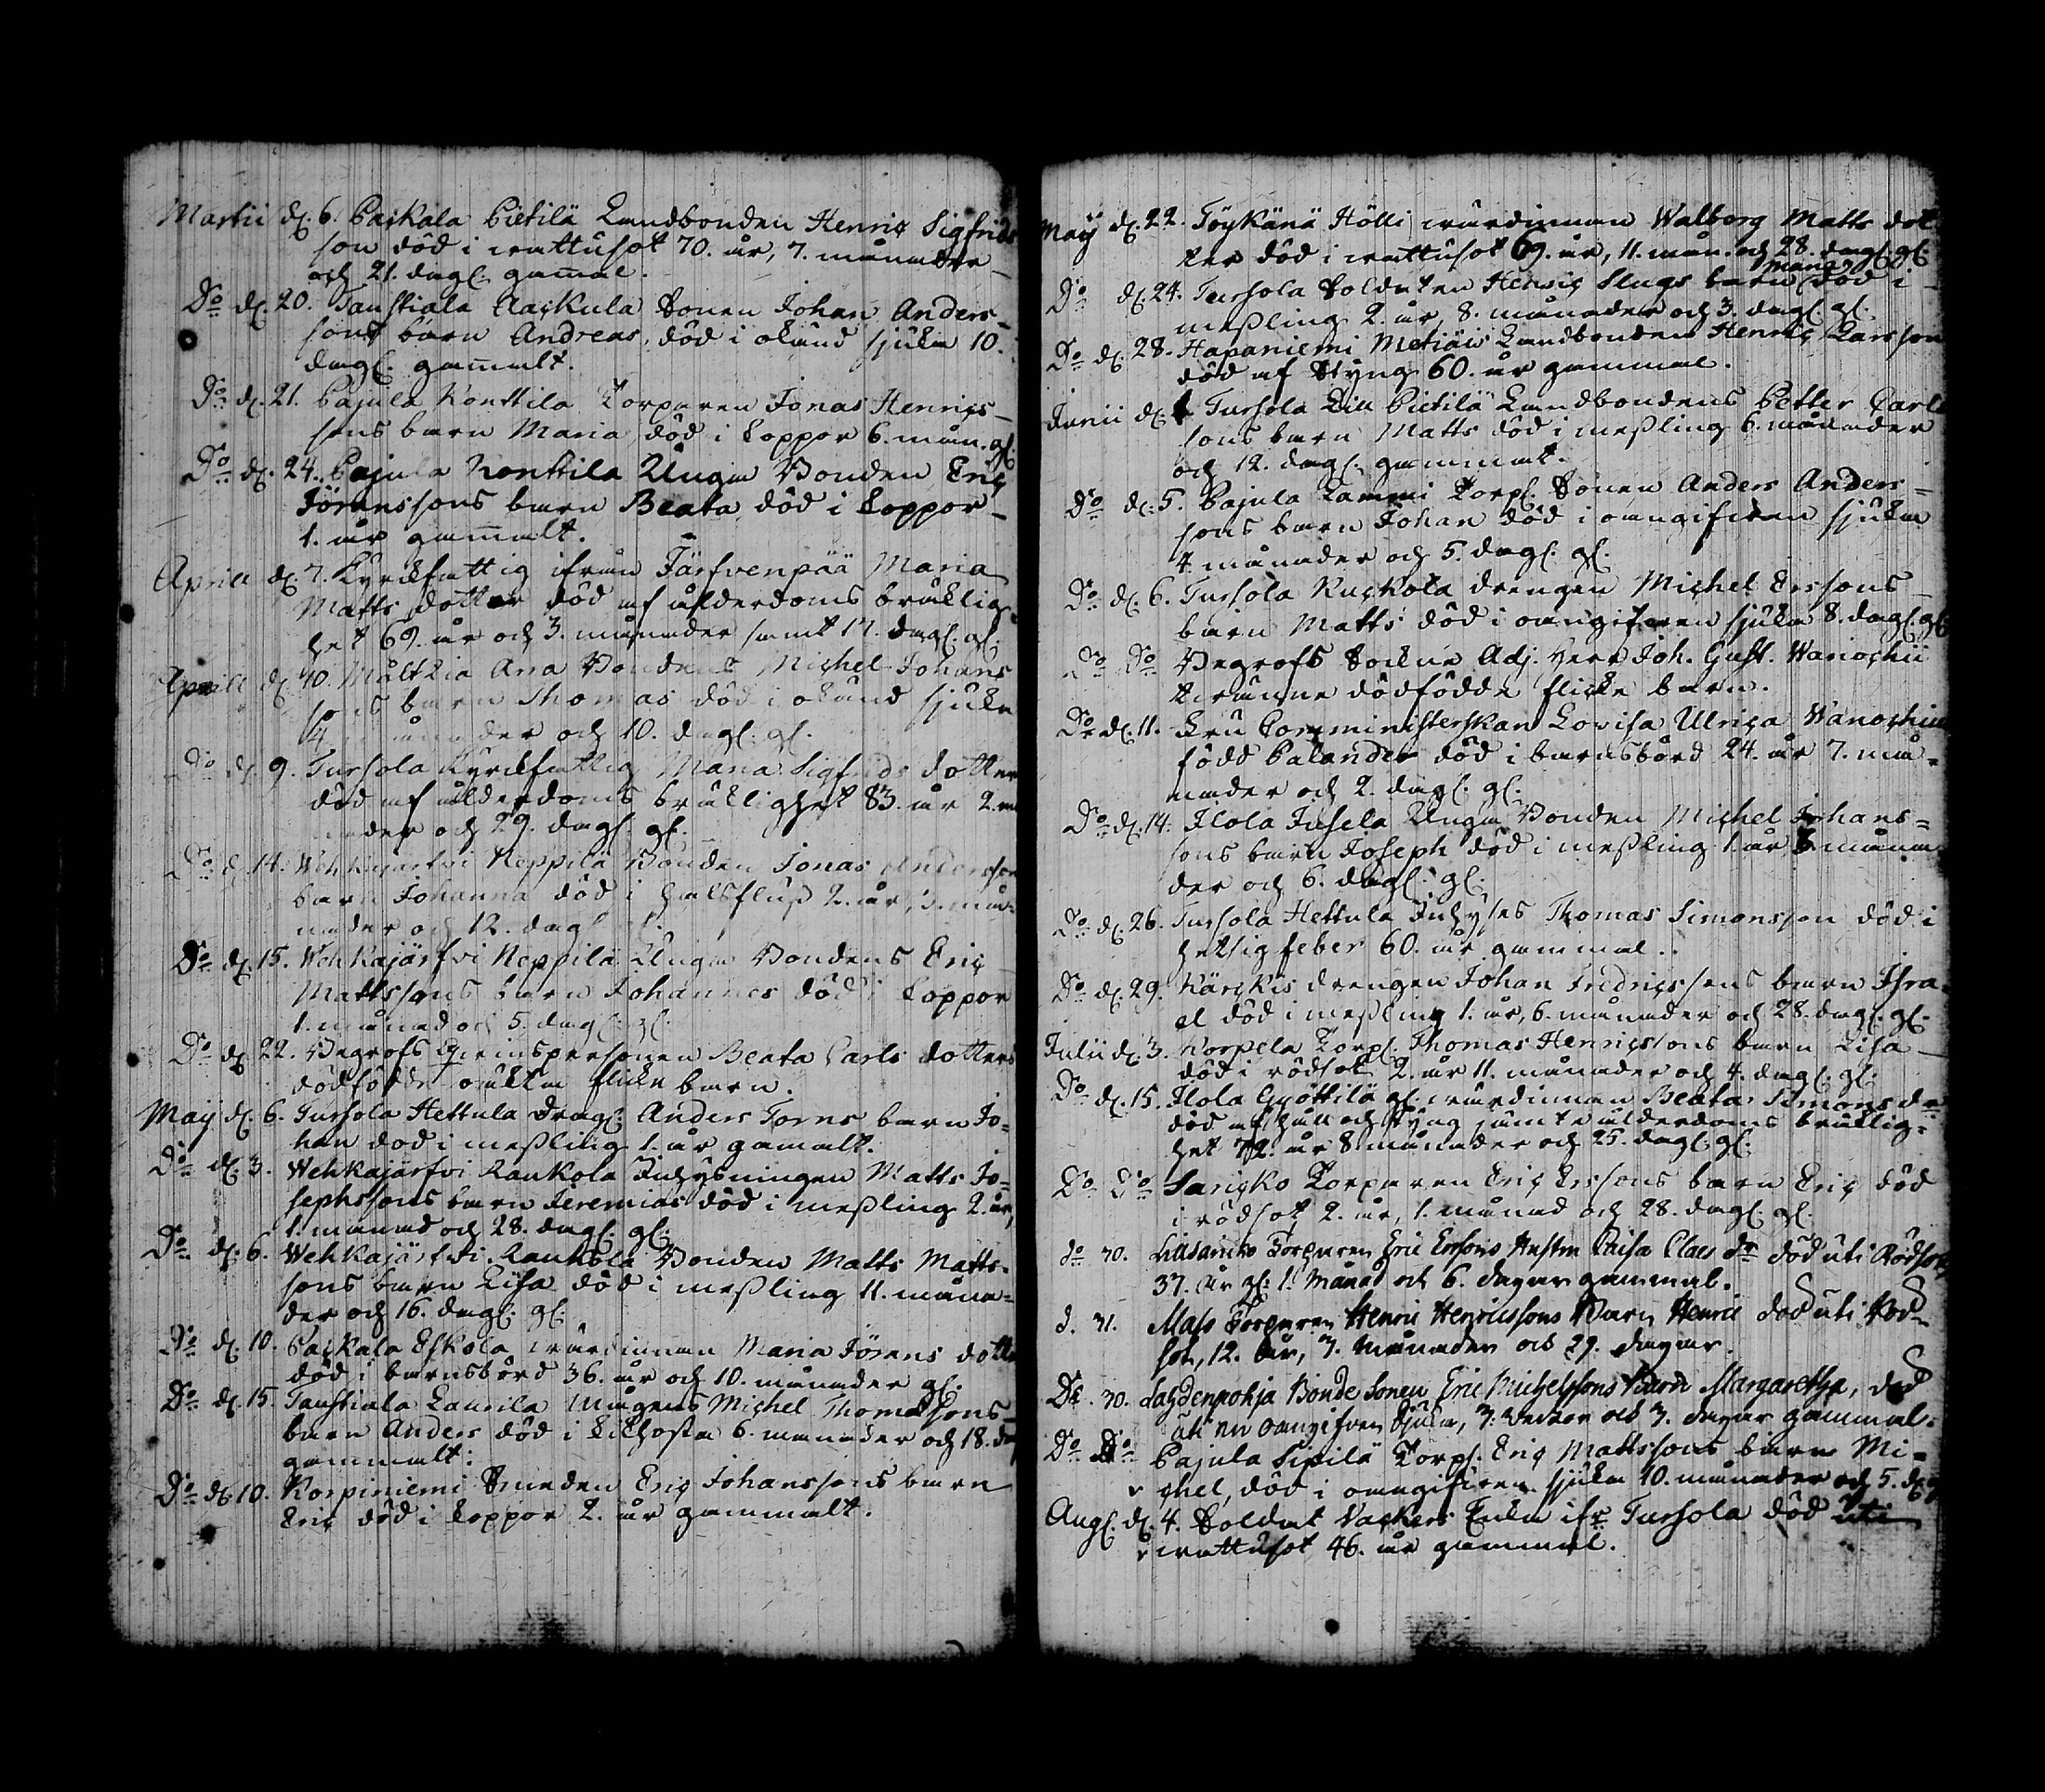 Martii d. 6. Packala Pietilä Landbonden Henric Sigfrids
son död i wattusot 70. år, 7. månader
och 21. dag. gamal.
Do d. 20. Taustiala Sonen Johan Anders-
sons barn Andreas, död i okänd sjuka 10.
dag. gamalt.
Do d. 21. Pajula Konttila Torparen Jonas Henrics-
sons barn Maria död i koppor 6. mån. gl.
Do d. 24. Pajula Konttila Unga Bonden Eric
Jöranssons barn Beata död i koppor
1. år gamalt.
Aprill d. 7. Kyrckfattig ifrån Järfvenpää Maria
Matts dotter död af ålderdoms bräcklig-
het 69. år och 3. månader samt 17. dag. gl.
Aprill d. 10. Måltzia Arra Bondens Michel Johans
sons barn Thomas död i okänd sjuka
der och 10. dag. gl.
Do d. 9. Tursola Kyrckfattig Maria Sigfrids dotter
död af ålderdoms bräcklighet 83. år 2. må
nader och 29. dag. gl.
Do d. 14. Wehkajärfvi Neppilä Bonden Jonas Andersson
barn Johanna död i halsfluss 2. år, 3. må-
nader och 12. dag
Do d. 15. Wehkajärfvi Neppilä Unga Bondens Eric
Mattssons barn Johannes död i koppor
1. månad och 5. dag. gl.
Do d. 22. Begrofs qwinspersonen Beata Carls dotters
dödfödde oäkta flicke barn.
Maij d. 6. Tursola Hettula Dräng. Anders Torns barn Jo-
han död i messling 1. år gamalt.
Do d. 3. Wehkajärfvi Raukola Inhysningen Matts Jo-
sephssons barn Jeremias död i messling 2. år,
1. månad och 28. dag. gl.
Do d. 6. Wehkajärfvi Raukola Bonden Matts Matts-
sons barn Lisa död i messling 11. måna-
der och 16. dag. gl.
Do d. 10. Packala Eskola wärdinnan Maria Jörans dotter
död i barnsbörd 36. år och 10. månader gl.
Do d. 15. Taustiala Laurila Mågens Michel Thomassons
barn Anders död i kikhosta 6. månader och 18. dag
gammalt.
Do d. 10. Korpiniemi Smeden Eric Johanssons barn
Eric död i koppor 2. år gammalt.
Maij d. 22. Töykänä Hölli wärdinnan Walborg Matts dot-
ter död i wattusot 69. år, 11. mån. och 28. dag. gl.
Maria
Do d. 24. Tursola Soldaten Henric Slugs barn död i
messling 2. år, 8. månader och 3. dag. gl.
Do d. 28. Hapaniemi Landbonden Henric Larsson
död af styng 60. år gammal.
Junii d. Tursola Lill Pietilä Landbondens Petter Carls
sons barn Matts död i messling 6. månader
och 12. dag. gammalt.
Do d. 5. Pajula Lammi Torp. Sonen Anders Anders-
sons barn Johan död i oangifwen sjuka
4. månader och 5. dag. gl.
Do d. 6. Tursola Kuckola drengen Michel Erssons
barn Matts död i oangifwen sjuka 8. dag. gl.
Do Do Begrofs Sockne Adj. Herr Joh. Gust. Wanochii
dödfödde flicke barn.
Do d. 11. Fru Comministerskan Lovisa Ulrica Wanochius
född Palander död i barnsbörd 24. år 7. må-
nader och 2. dag. gl.
Do d. 14. Ilola Jusela Unga Bonden Michel Johans-
sons barn Joseph död i messling 1. år 3. måna
der och 6. dag. gl.
Do d. 26. Tursola Hettula Inhyses Thomas Simonsson död i
hetsig feber 60. år gammal.
Do d. 29. Kärckis drengen Johan Fredricssons barn Isra-
el död i messling 1. år, 6. månader och 28. dag. gl.
Julii d. 3. Korpela Torp. Thomas Henricssons barn Lisa
död i rödsot 2. år 11. månader och 4. dag. gl.
Do d. 15. Ilola gl. wärdinnan Beata Simons dr
död af håll och styng jämte ålderdoms bräcklig-
het 72. år 8 månader och 25. dag. gl.
Do Do Saricko Torparen Eric Erssons barn Eric död
i rödsot 2. år, 1. månad och 28. dag. gl.
do 30. Torparen Eric Erssons Hustru Caisa Claes dr död uti Rödsot
37. år gl. 1. Månad och 6. dagar gammal.
d. 31. Torparen Henric Henricssons Barn Henric död uti Röd-
sot, 12. År, 7. Månader och 29. dagar.
Do 30. Lahdenpohja Bonde Sonen Eric Michelssons Barn Margaretha, död
uti en oangifven Sjuka, 3. veckor och 3. dagar gammal.
Do Do Pajula Sipilä Torp. Eric Mattssons barn Mi-
chel, död i oangifwen sjuka 10. månader och 5. d. gl.
Aug. d. 4. Soldat Vackers Enka ifr. Tursola död uti
wattusot 46. år gammal.